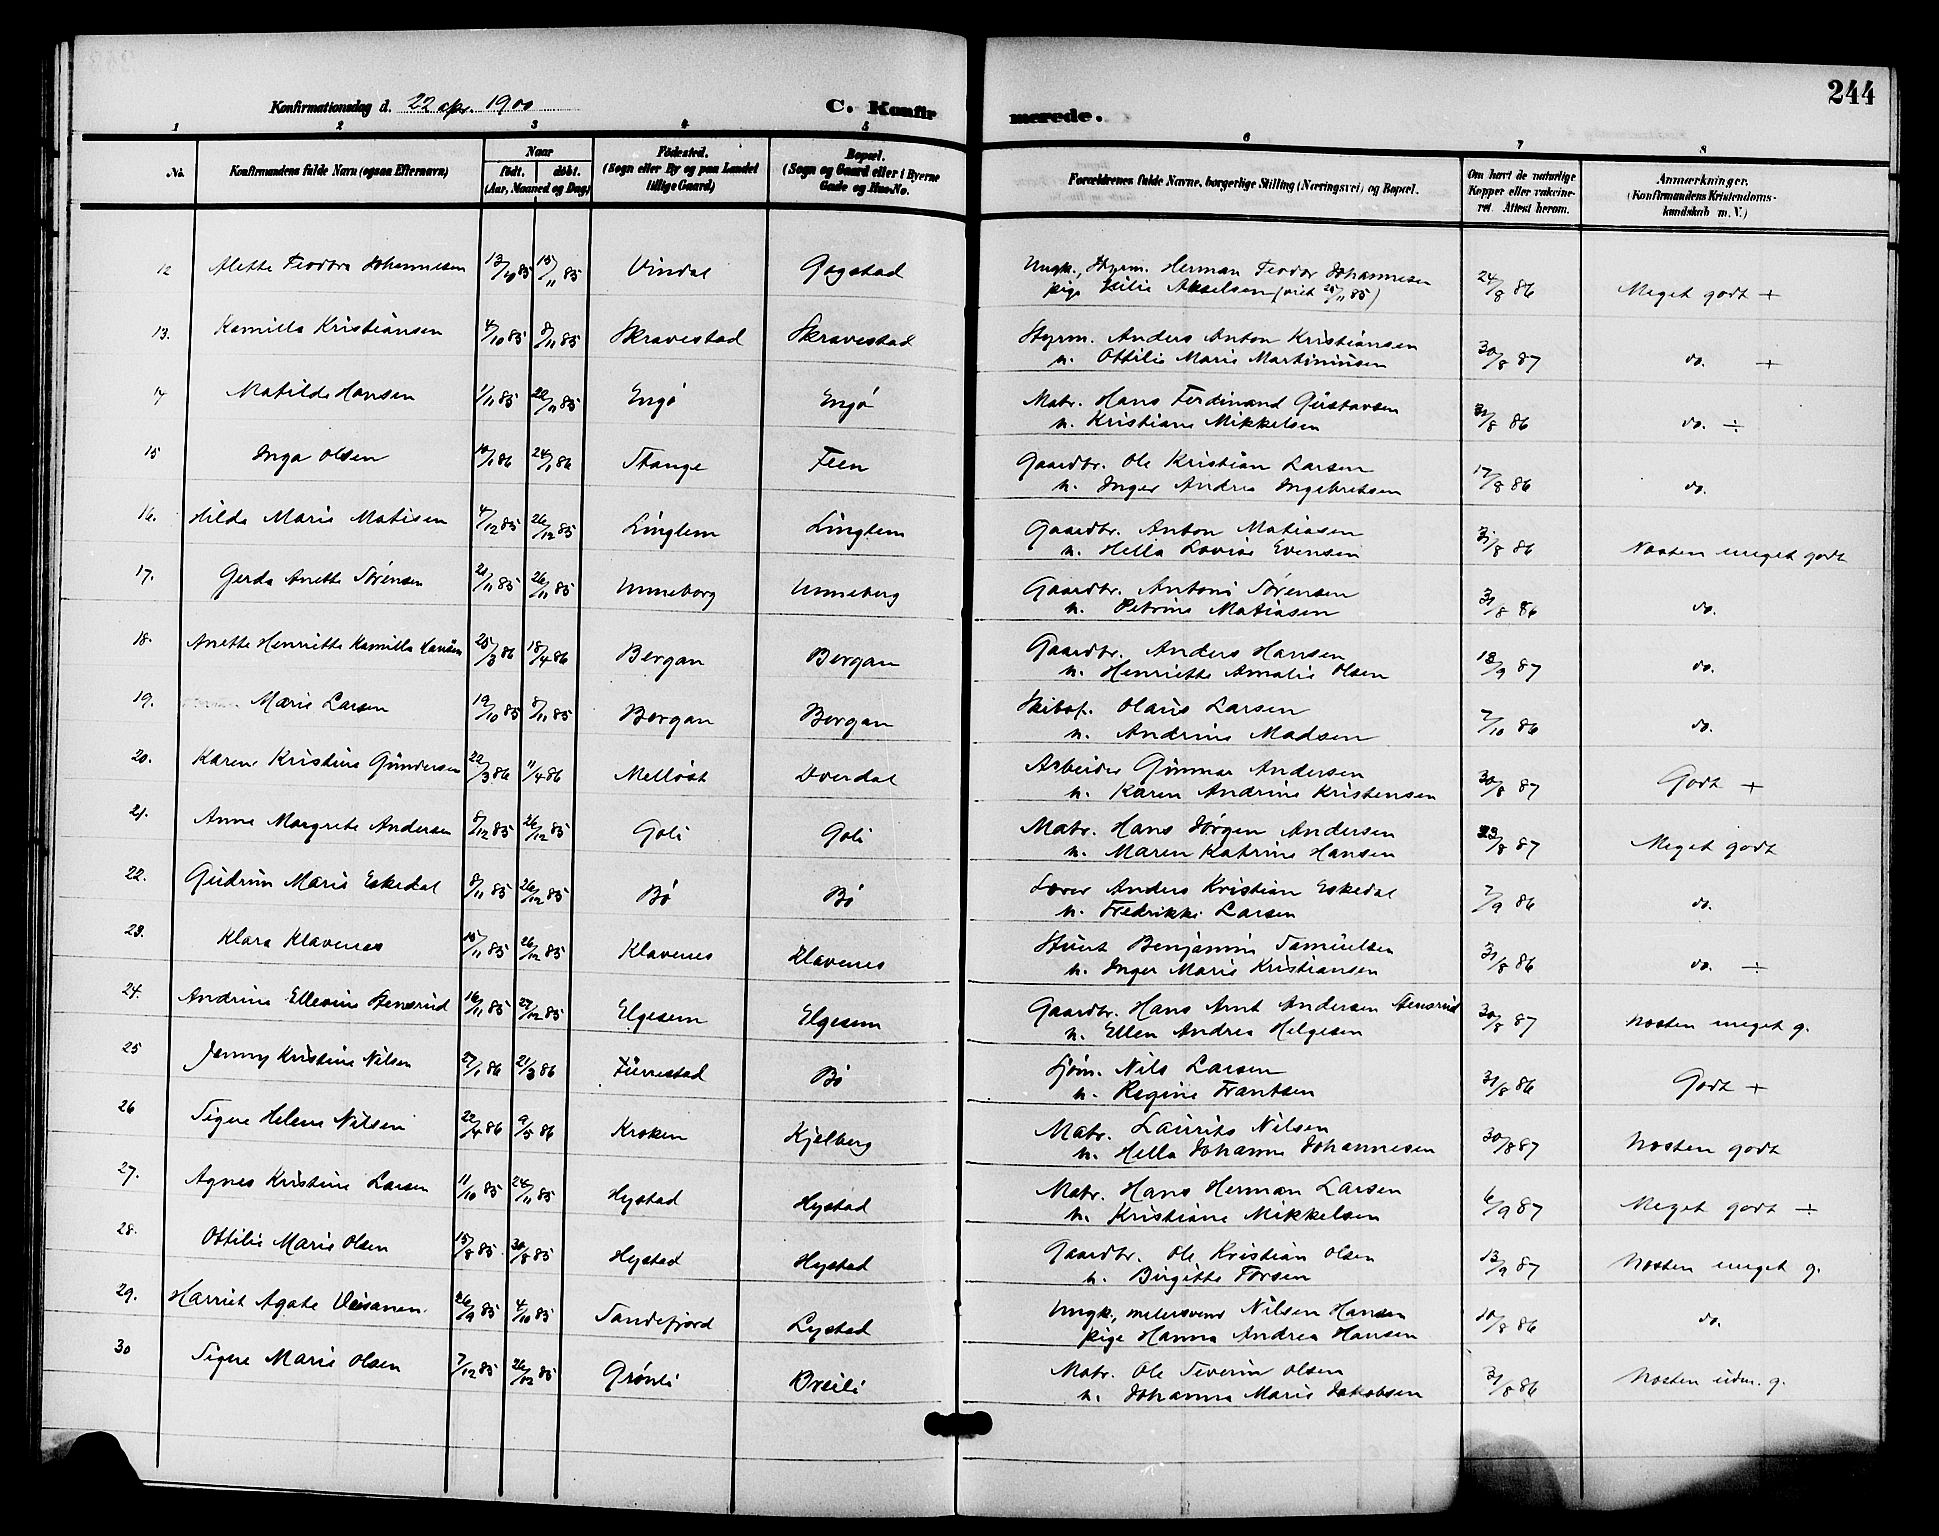 244
Konfirmationsdag d. 22 apr. 1900
C. Konfirmerede.
1 2 3 4 5 6 7 8
No. | Konfirmandens fulde Navn (ogsaa Efternavn) | Naar født. døbt. (Aar, Maaned og Dag) | Fødested. (Sogn eller By og paa Landet tillige Gaard) | Bopæl. (Sogn og Gaard eller i Byerne Gade og Hus-No. | Forældrenes fulde Navne, borgerlige Stilling (Næringsvei) og Bopæl. | Om havt de naturlige Kopper eller vakcineret. Attest herom. | Anmærkninger. (Konfirmandens Kristendomskundskab m. V.)
12 Alette Teodora Johannesen 13/10 85 15/11 85 Vindal Gogstad Ungk., Styrm. Herman Teodor Johannesen 24/8 86 Meget godt +
pige Akselsen (viet 25/11 85)
13. Kamilla Kristiansen 4/10 85 8/11 85 Skravestad Skravestad Styrm. Anders Anton Kristiansen 30/8 87 do. +
h. Ottilie Marie Martiniusen
14 Matilde Hansen 1/11 85 22/11 85 Engø Engø Matr. Hans Ferdinand Gustavsen 31/8 86 do. ÷
h. Kristiane Mikkelsen
15 Inga Olsen 10/1 86 24/1 86 Stange Feen Gaardbr. Ole Kristian Larsen 17/8 86 do.
h. Inger Andrea Ingebretsen
16. Hilda Marie Matisen 4/12 85 26/12 85 Linglem Linglem Gaardbr. Anton Matiasen 31/8 86 Næsten meget godt
h. Hella Lovise Evensen
17. Gerda Anette Sørensen 21/11 85 26/11 85 Unneberg Unneberg Gaardbr. Antoni Sørensen 31/8 86 do.
h. Petrine Matiasen
18. Anette Henriette Kamilla Hansen 25/3 86 18/4 86 Bergan Bergan Gaardbr. Anders Hansen 13/9 87 do.
h. Henriette Amalie Olsen
19. Marie Larsen 19/10 85 8/11 85 Bergan Bergan Skibsf. Olaus Larsen 7/10 86 do.
h. Andrine Madsen
20. Karen Kristine Gundersen 22/3 86 11/4 86 Melløst Hverdal Arbeider Gunnar Andersen 30/8 87 Godt +
h. Karen Andrine Kristensen
21. Anne Margrete Andersen 8/12 85 26/12 85 Goli Goli Matr. Hans Jørgen Andersen 23/8 87 Meget godt
h. Maren Katrine Hansen
22. Gudrun Marie Eskedal 8/11 85 26/12 85 Bø Bø Lærer Anders Kristian Eskedal 7/9 86 do.
h. Fredrikke Larsen
23. Klara Klavenes 15/11 85 26/12 85 Klavenes Klavenes Stuert Benjamin Samuelsen 31/8 86 do. ÷
h. Inger Marie Kristiansen
24. Andrine Ellevine Stensrud 16/11 85 27/12 85 Elgesem Elgesem Gaardbr. Hans Arnt Andersen Stensrud 30/8 87 Næsten meget g.
h. Ellen Andrea Helgesen
25 Jenny Kristine Nilsen 27/1 86 21/3 86 Furrestad Bø Sjøm. Nils Larsen 31/8 86 Godt +
h. Regine Frantsen
26 Signe Helene Nilsen 22/4 86 9/5 86 Kroken Kjelberg Matr. Laurits Nilsen 30/8 87 Næsten godt
h. Hella Johanne Johannesen
27. Agnes Kristine Larsen 11/10 85 24/11 85 Hystad Hystad Matr. Hans Herman Larsen 6/9 87 Meget godt ÷
h. Kristiane Mikkelsen
28. Ottilie Marie Olsen 15/8 85 30/8 85 Hystad Hystad Gaardbr. Ole Kristian Olsen 13/9 87 Næsten meget g.
h. Birgitte Torsen
29. Harriet Agate 26/9 85 4/10 85 Sandefjord Lystad Ungk, melersvend Nilsen Hansen 10/8 86 do.
pige Hanna Andrea Hansen
30 Signe Marie Olsen 7/12 85 26/12 85 Grønli Breili Matr. Ole Severin Olsen 31/8 86 Næsten udm. g.
h. Johanne Marie Jakobsen